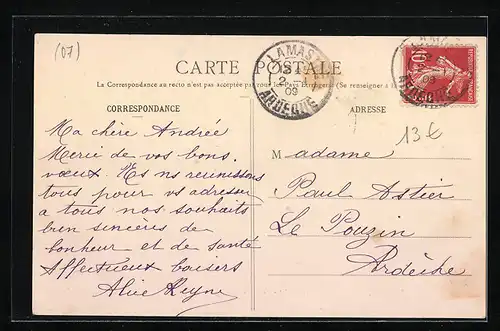 (07)
CARTE POSTALE
La Correspondance au recto n'est pas acceptée par tous les Pays Étrangers (Se renseigner à
CORRESPONDANCE
ADRESSE
LAMAS
09
ARDECHE
ARDECHE
09
10
13€
Ma chère Andrée
Merie de vos bons
voeux. Ns ns reunissons
tous pour vs adresser
a tous nos souhaits
bien sincères de
bonheur et de santé
Affectueux baisers
Alice Reyne
Madame
Paul Astier
Le Pouzin
Ardèche